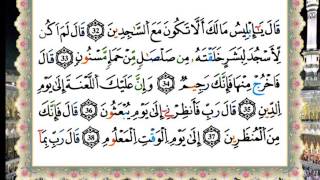 قَالَ يَـٰٓإِبْلِيسُ مَا لَكَ أَلَّا تَكُونَ مَعَ ٱلسَّـٰجِدِينَ 32 قَالَ لَمْ أَكُن
لِّأَسْجُدَ لِبَشَرٍ خَلَقْتَهُۥ مِن صَلْصَـٰلٍ مِّنْ حَمَإٍ مَّسْنُونٍ 33 قَالَ
فَٱخْرُجْ مِنْهَا فَإِنَّكَ رَجِيمٌ 34 وَإِنَّ عَلَيْكَ ٱللَّعْنَةَ إِلَىٰ يَوْمِ
ٱلدِّينِ 35 قَالَ رَبِّ فَأَنظِرْنِىٓ إِلَىٰ يَوْمِ يُبْعَثُونَ 36 قَالَ فَإِنَّكَ
مِنَ ٱلْمُنظَرِينَ 37 إِلَىٰ يَوْمِ ٱلْوَقْتِ ٱلْمَعْلُومِ 38 قَالَ رَبِّ بِمَآ